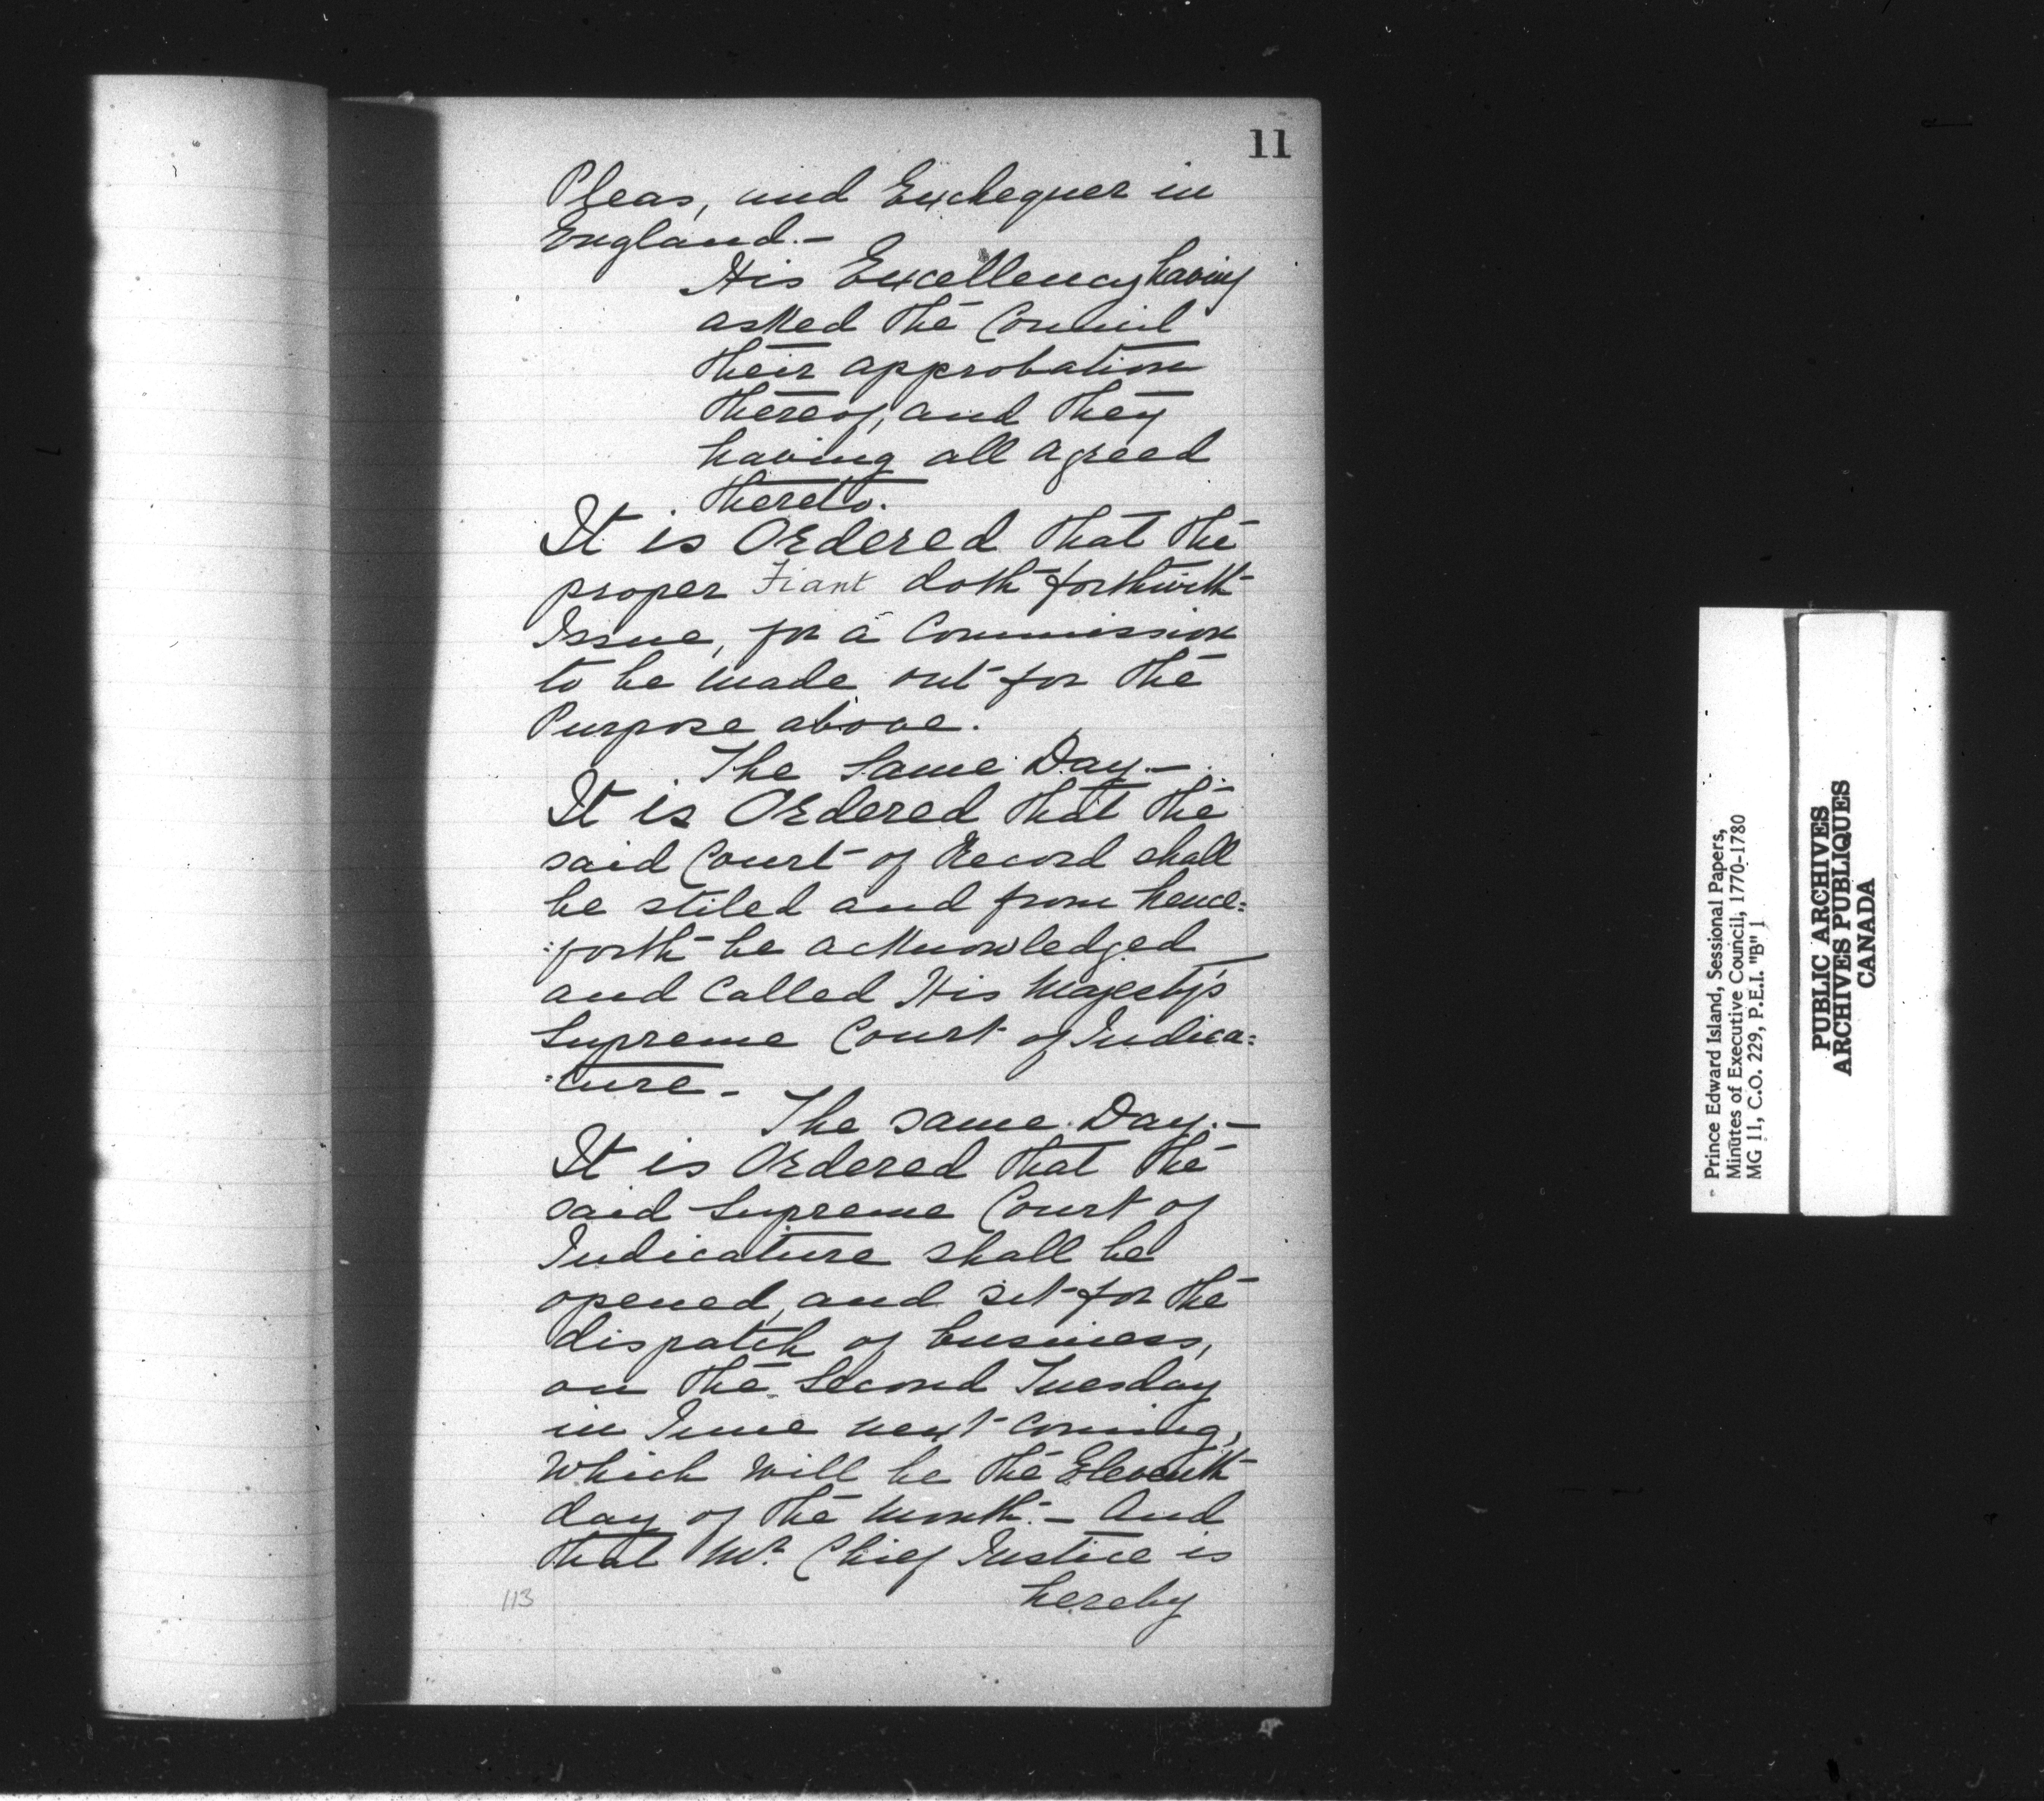 11
Pleas, and Exchequer in
England.—
His Excellency having
asked the Council
their approbation
thereof, and they
having all agreed
thereto.
It is Ordered that the
proper Fiant doth forthwith
Issue, for a Commission
to be made out for the
Purpose above.
The Same Day.—
It is Ordered that the
said Court of Record shall
be stiled and from hence=
=forth be acknowledged
and Called His Majesty's
Supreme Court of Judica=
=ture.—
The same Day.—
It is Ordered that the
said Supreme Court of
Judicature shall be
opened, and set for the
dispatch of business,
on the Second Tuesday
in June next coming,
which will be the Eleventh
day of the month.— And
that Mr. Chief Justice is
hereby
113
Prince Edward Island, Sessional Papers,
Minutes of Executive Council, 1770-1780
MG 11, C.O. 229, P.E.I. "B" 1
PUBLIC ARCHIVES
ARCHIVES PUBLIQUES
CANADA